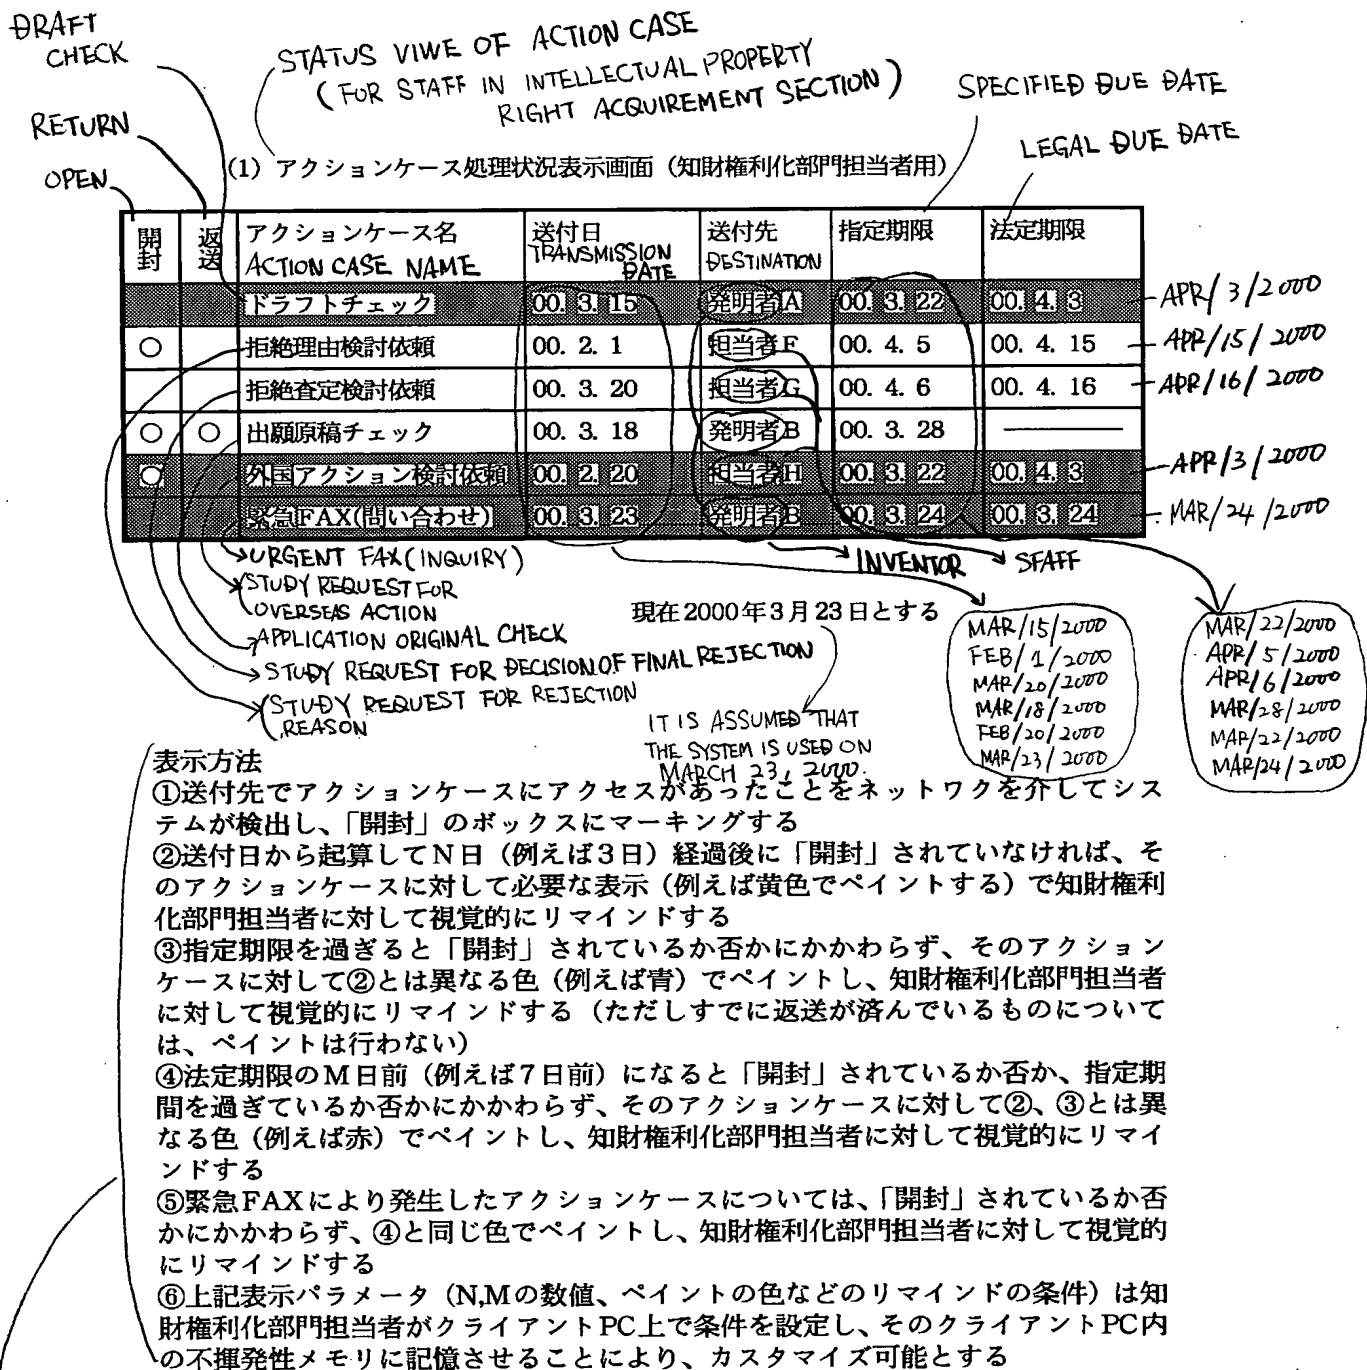 DRAFT
CHECK
STATUS VIWE OF ACTION CASE
(FOR STAFF IN INTELLECTUAL PROPERTY
RIGHT ACQUIREMENT SECTION)
SPECIFIED DUE DATE
LEGAL DUE DATE
RETURN
OPEN
(1) アクションケース処理状況表示画面（知財権利化部門担当者用）
開封 返送 アクションケース名 送付日 送付先 指定期限 法定期限
ACTION CASE NAME TRANSMISSION DATE DESTINATION
ドラフトチェック 00. 3. 15 発明者A 00. 3. 22 00. 4. 3 APR/3/2000
○ 拒絶理由検討依頼 00. 2. 1 担当者F 00. 4. 5 00. 4. 15 APR/15/2000
拒絶査定検討依頼 00. 3. 20 担当者G 00. 4. 6 00. 4. 16 APR/16/2000
○ ○ 出願原稿チェック 00. 3. 18 発明者B 00. 3. 28 ―――
○ 外国アクション検討依頼 00. 2. 20 担当者H 00. 3. 22 00. 4. 3 APR/3/2000
緊急FAX(問い合わせ) 00. 3. 23 発明者B 00. 3. 24 00. 3. 24 MAR/24/2000
URGENT FAX(INQUIRY)
INVENTOR
SFAFF
STUDY REQUEST FOR
OVERSEAS ACTION
APPLICATION ORIGINAL CHECK
STUDY REQUEST FOR DECISION OF FINAL REJECTION
STUDY REQUEST FOR REJECTION
REASON
現在2000年3月23日とする
IT IS ASSUMED THAT
THE SYSTEM IS USED ON
MARCH 23, 2000.
MAR/15/2000
FEB/1/2000
MAR/20/2000
MAR/18/2000
FEB/20/2000
MAR/23/2000
MAR/22/2000
APR/5/2000
APR/6/2000
MAR/28/2000
MAR/22/2000
MAR/24/2000
表示方法
①送付先でアクションケースにアクセスがあったことをネットワクを介してシス
テムが検出し、「開封」のボックスにマーキングする
②送付日から起算してN日（例えば3日）経過後に「開封」されていなければ、そ
のアクションケースに対して必要な表示（例えば黄色でペイントする）で知財権利
化部門担当者に対して視覚的にリマインドする
③指定期限を過ぎると「開封」されているか否かにかかわらず、そのアクション
ケースに対して②とは異なる色（例えば青）でペイントし、知財権利化部門担当者
に対して視覚的にリマインドする（ただしすでに返送が済んでいるものについて
は、ペイントは行わない）
④法定期限のM日前（例えば7日前）になると「開封」されているか否か、指定期
間を過ぎているか否かにかかわらず、そのアクションケースに対して②、③とは異
なる色（例えば赤）でペイントし、知財権利化部門担当者に対して視覚的にリマイ
ンドする
⑤緊急FAXにより発生したアクションケースについては、「開封」されているか否
かにかかわらず、④と同じ色でペイントし、知財権利化部門担当者に対して視覚的
にリマインドする
⑥上記表示パラメータ（N,Mの数値、ペイントの色などのリマインドの条件）は知
財権利化部門担当者がクライアントPC上で条件を設定し、そのクライアントPC内
の不揮発性メモリに記憶させることにより、カスタマイズ可能とする